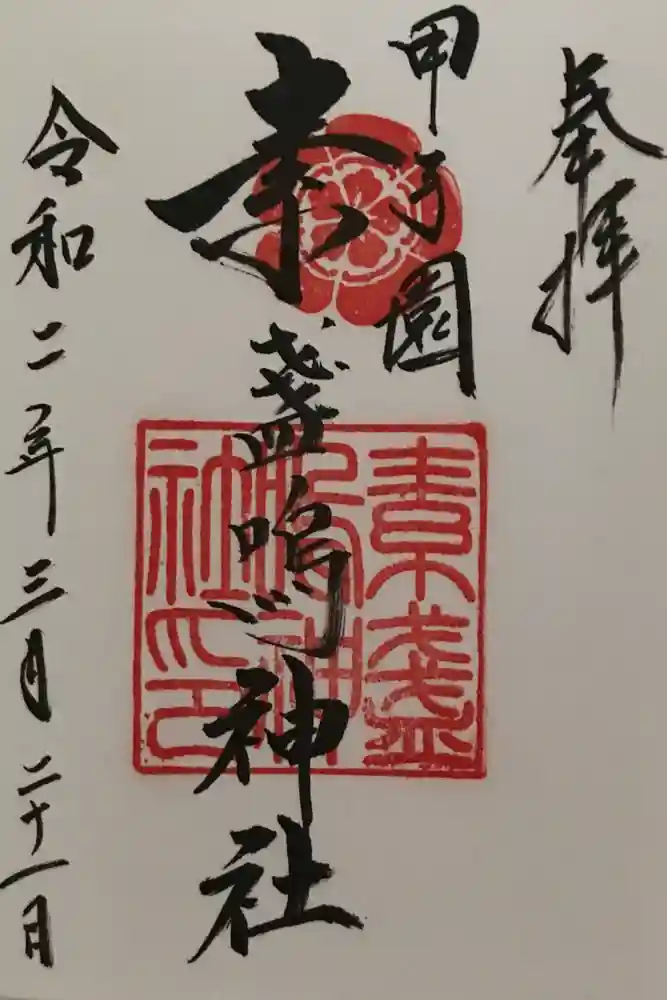 奉拝
甲子園
素盞嗚神社
素盞
嗚神
社之印
令和二年三月二十一日